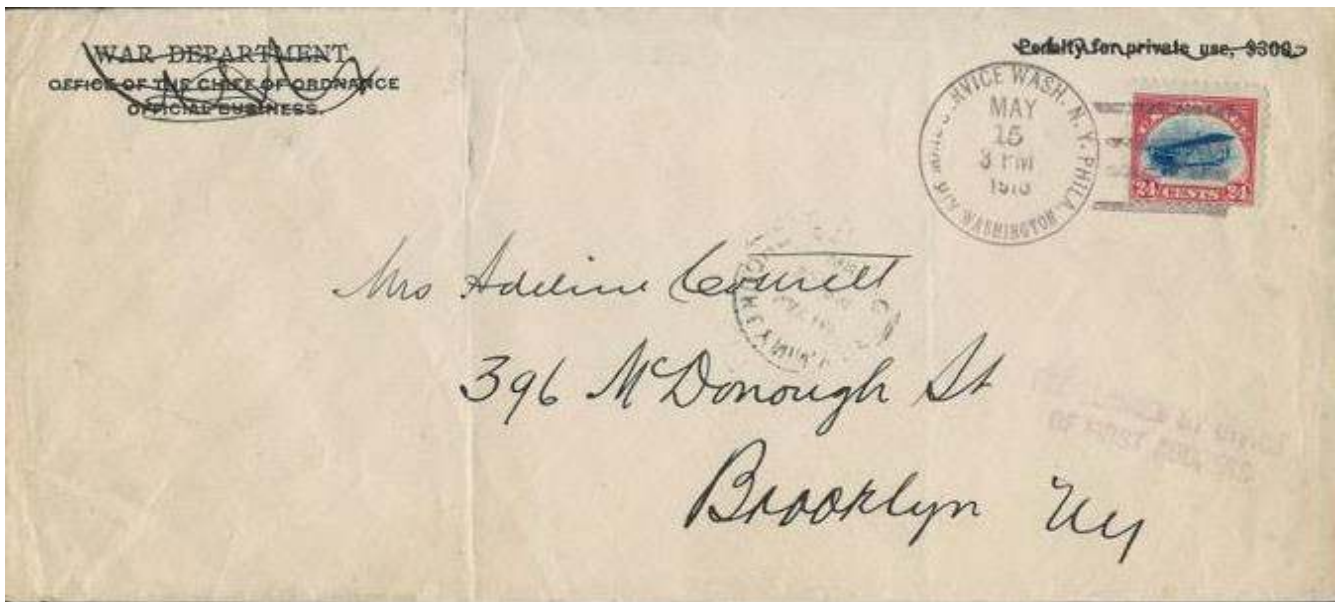 WAR DEPARTMENT
OFFICE OF THE CHIEF OF ORDNANCE
OFFICIAL BUSINESS.
Penalty for private use, $300
SERVICE WASH. N.Y. PHILA.
MAY
15
3 PM
1918
WASHINGTON
24 CENTS 24
Mrs Adeline
396 McDonough St
Brooklyn NY
OF FIRST